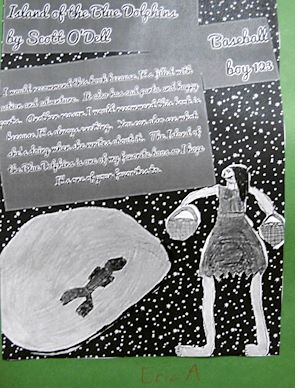 Island of the Blue Dolphins
by Scott O'Dell
Baseball
boy 123
I would recommend this book because It's filled with
action and adventure. It also has sad parts and happy
parts. Another reason I would recommend this book is
because It's always exciting. You can also see what
she's doing when she writes about it. The Island of
the Blue Dolphins is one of my favorite so I hope
It's one of your favorites to.
Eric A